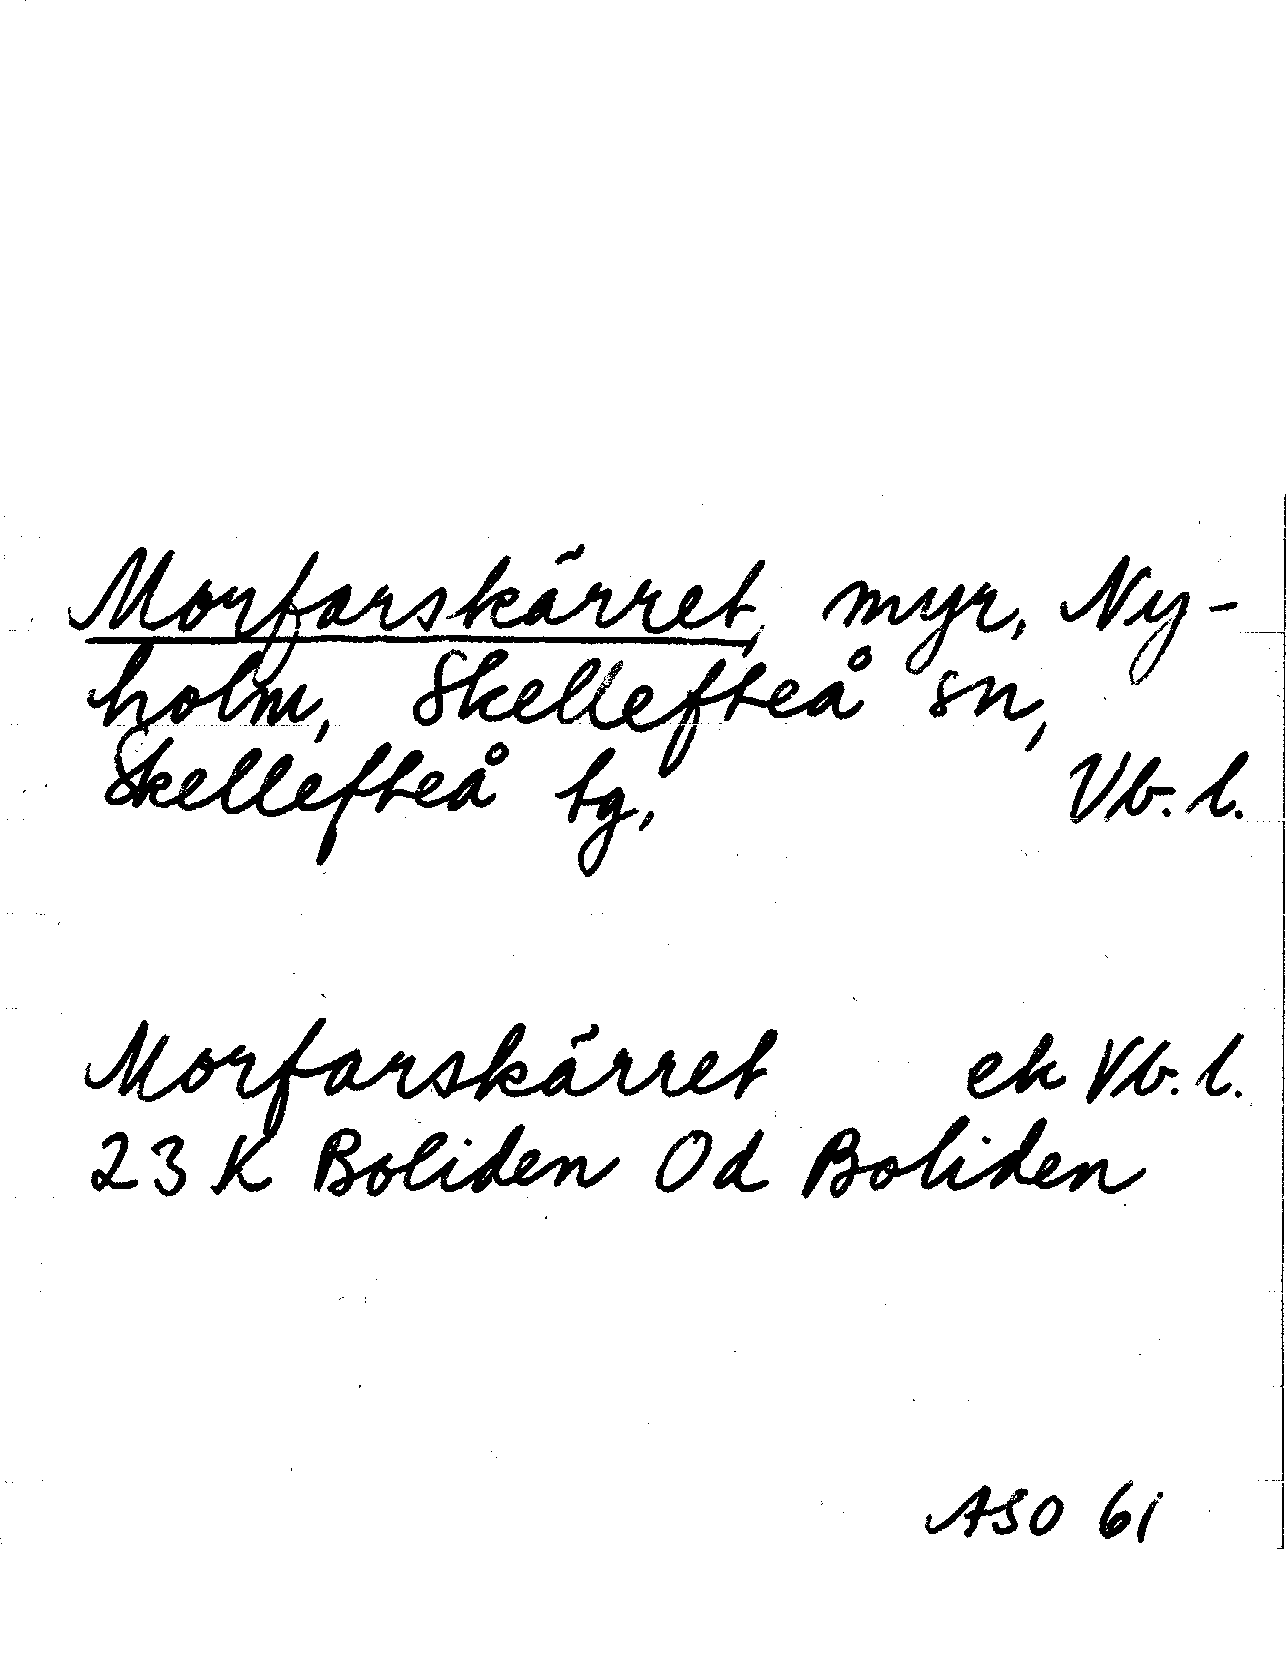 Morfarskärret, myr, Ny-
holm, Skellefteå sn,
Skellefteå tg, Vb. l.
Morfarskärret ek Vb. l.
23 K Boliden Od Boliden
ASO 61